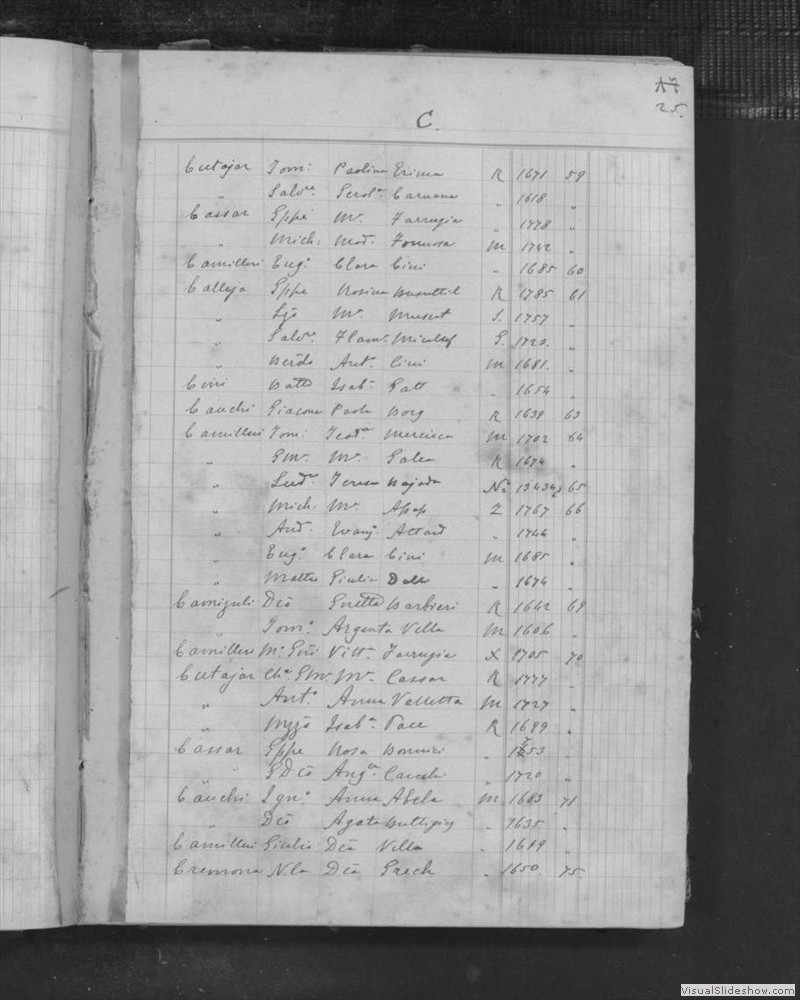 25.
C.
Cutajar Tom: Paolina Erima R 1671 59
" Salvre Scrola Caruana " 1618 "
Cassar Gppe Ma. Farrugia " 1778 "
" Mich: Mad. Formosa M 1742 "
Camilleri Eugo Clara Cini " 1685 60
Calleja Gppe Rosina Busuttil R 1785 61
" Ma. Muscat S. 1757 "
" Salvre Flamа. Micallef G. 1720. "
" Berdo Anta. Cini M 1681. "
Cini Batta Isaba. Gatt " 1654 "
Cauchi Giacomo Paola Borg R 1639 63
Camilleri Tom: Teoda Mercieca M 1702 64
" GMa. Ma. Galea R 1674 "
" Luda Teresa Bajada No 65
" Mich: Ma. Assap Z 1767 66
" And. Evang. Attard " 1746 "
" Eugo Clara Cini M 1685 "
" Matteo Giulia Dalli " 1674 "
Camiguli Dco Guretta Barbieri R 1642 69
" Tomo. Argenta Vella M 1606 "
Camilleri Ma Gni Vitta. Farrugia X 1705 70
Cutajar GMa. Ma. Cassar R 1777 "
" Anto. Anna Valletta M 1727 "
" Isaba. Pace R 1699 "
Cassar Gppe Rosa Bonnici "
" GDco Anga. Cauchi " 1720 "
Cauchi Igno. Anna Abela M 1683 71
" Dco Agata Buttigieg " 1635 "
Camilleri Giulio Dca Vella " 1619 "
Cremona Nla Dca Grech " 1650. 75.
VisualSlideshow.com